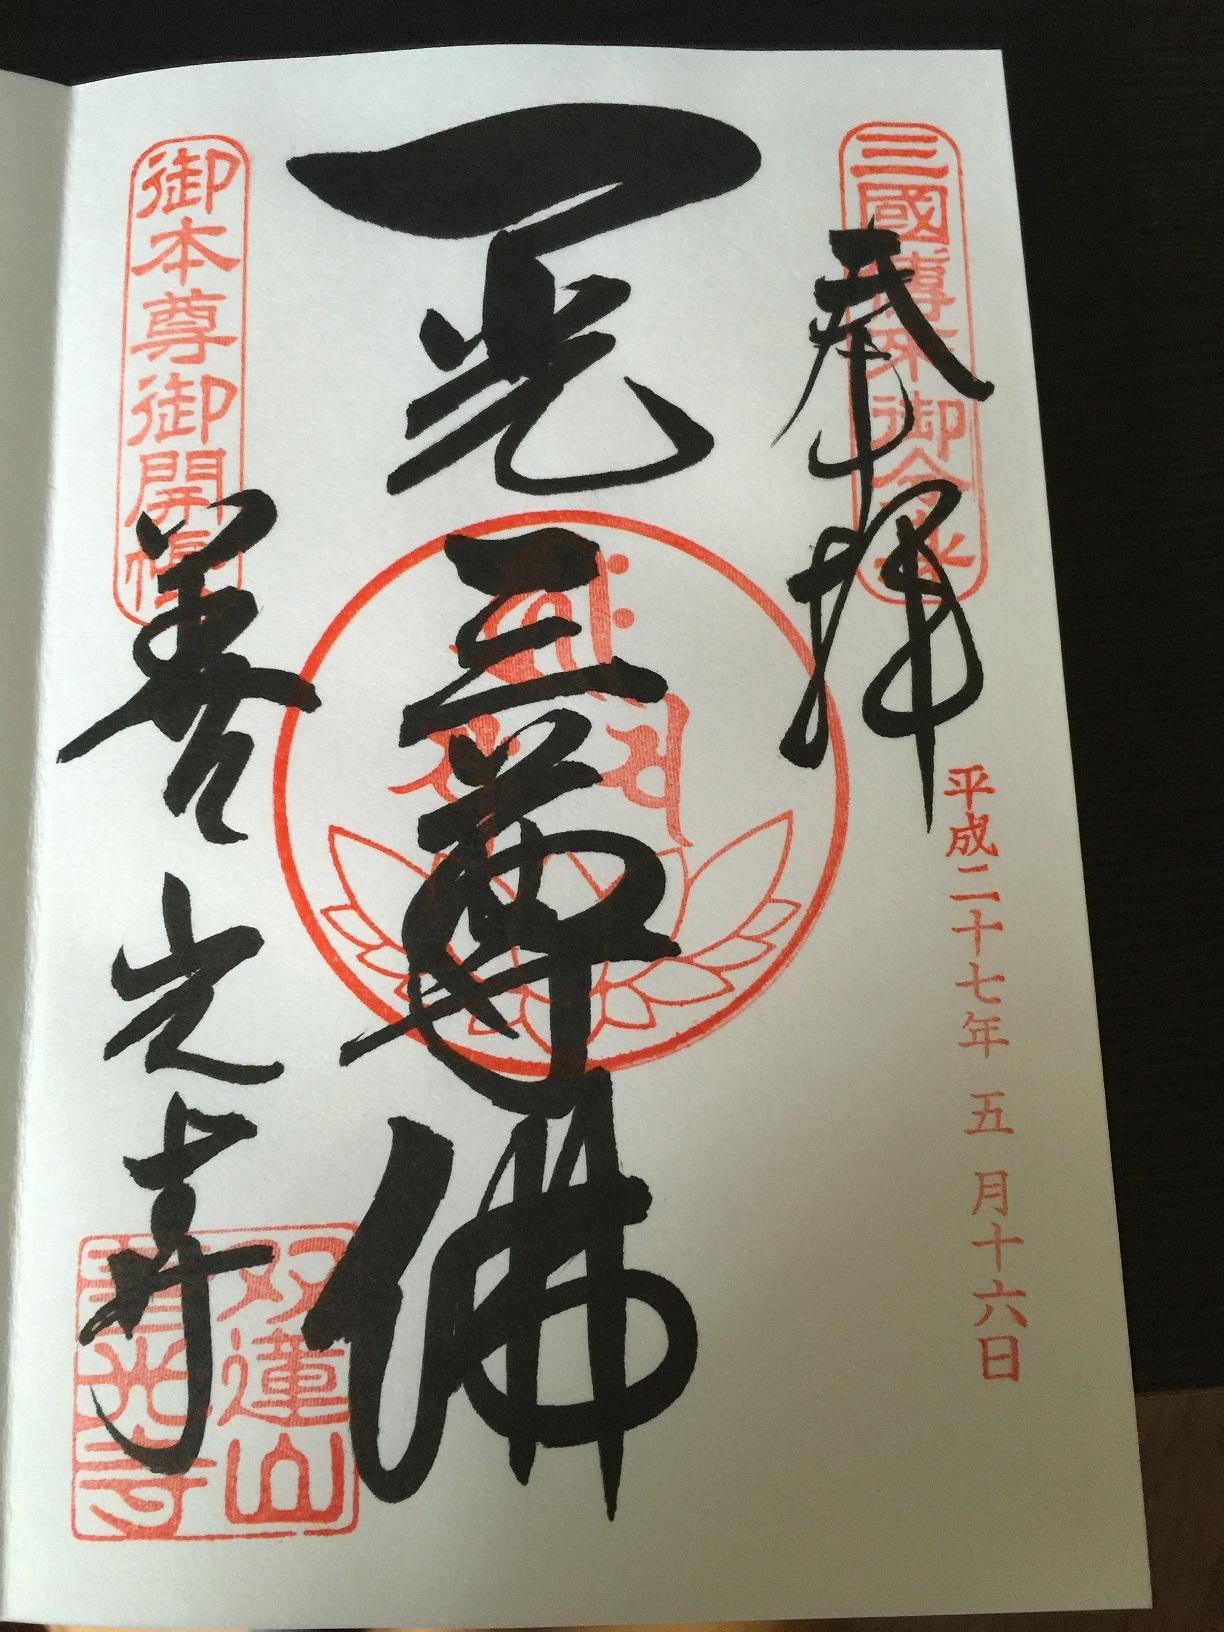 奉拝
三國傳来御分身
平成二十七年 五 月十六日
一光三尊佛
御本尊御開帳
善光寺
双蓮山
善光寺